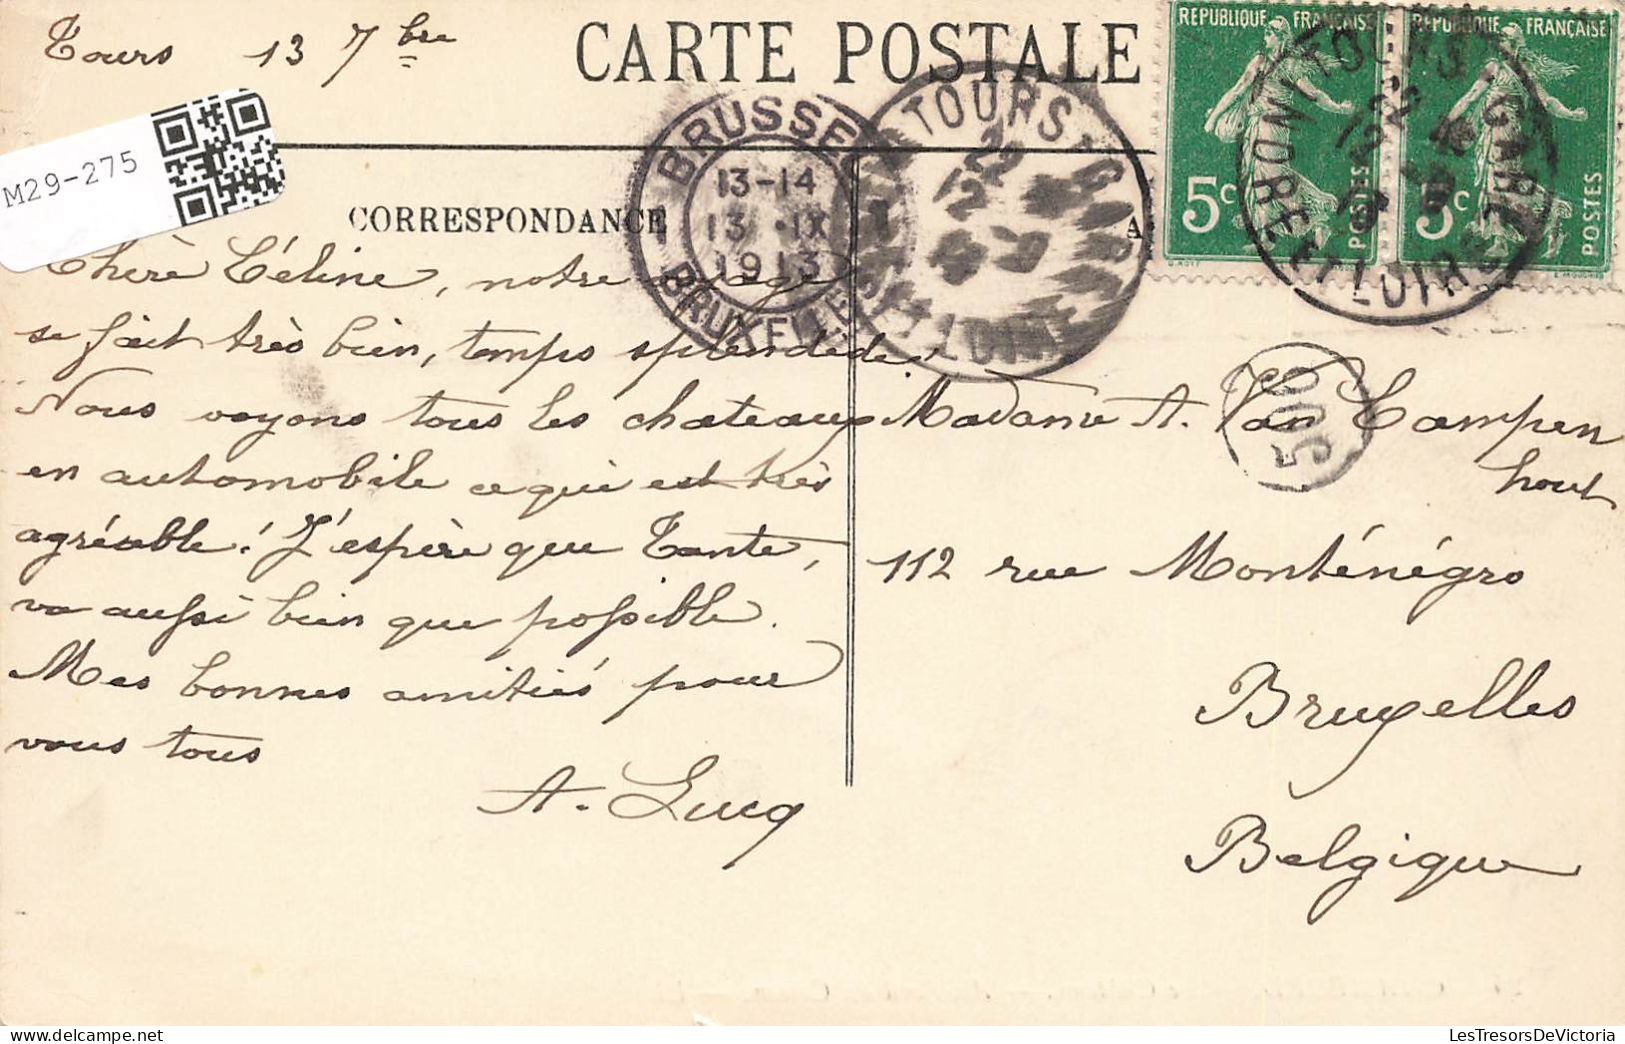 Tours 13 7bre
CARTE POSTALE
REPUBLIQUE FRANÇAISE
5c
POSTES
REPUBLIQUE FRANÇAISE
5c
POSTES
TOURS-GARE
INDRE ET LOIRE
BRUSSEL
13-14
13 IX
1913
BRUXELLES
TOURS-GARE
22
12
ET LOIRE
M29-275
CORRESPONDANCE
A
Chère Céline, notre voyage
se fait très bien, temps splendede,
Nous voyons tous les chateaux
en automobile ce qui est très
agréable! J'espère que Tante,
va aussi bien que possible.
Mes bonnes amitiés pour
vous tous
A. Lucq
506
Madame A. Van Campen
hout
112 rue Monténégro
Bruxelles
Belgique
LesTresorsDeVictoria